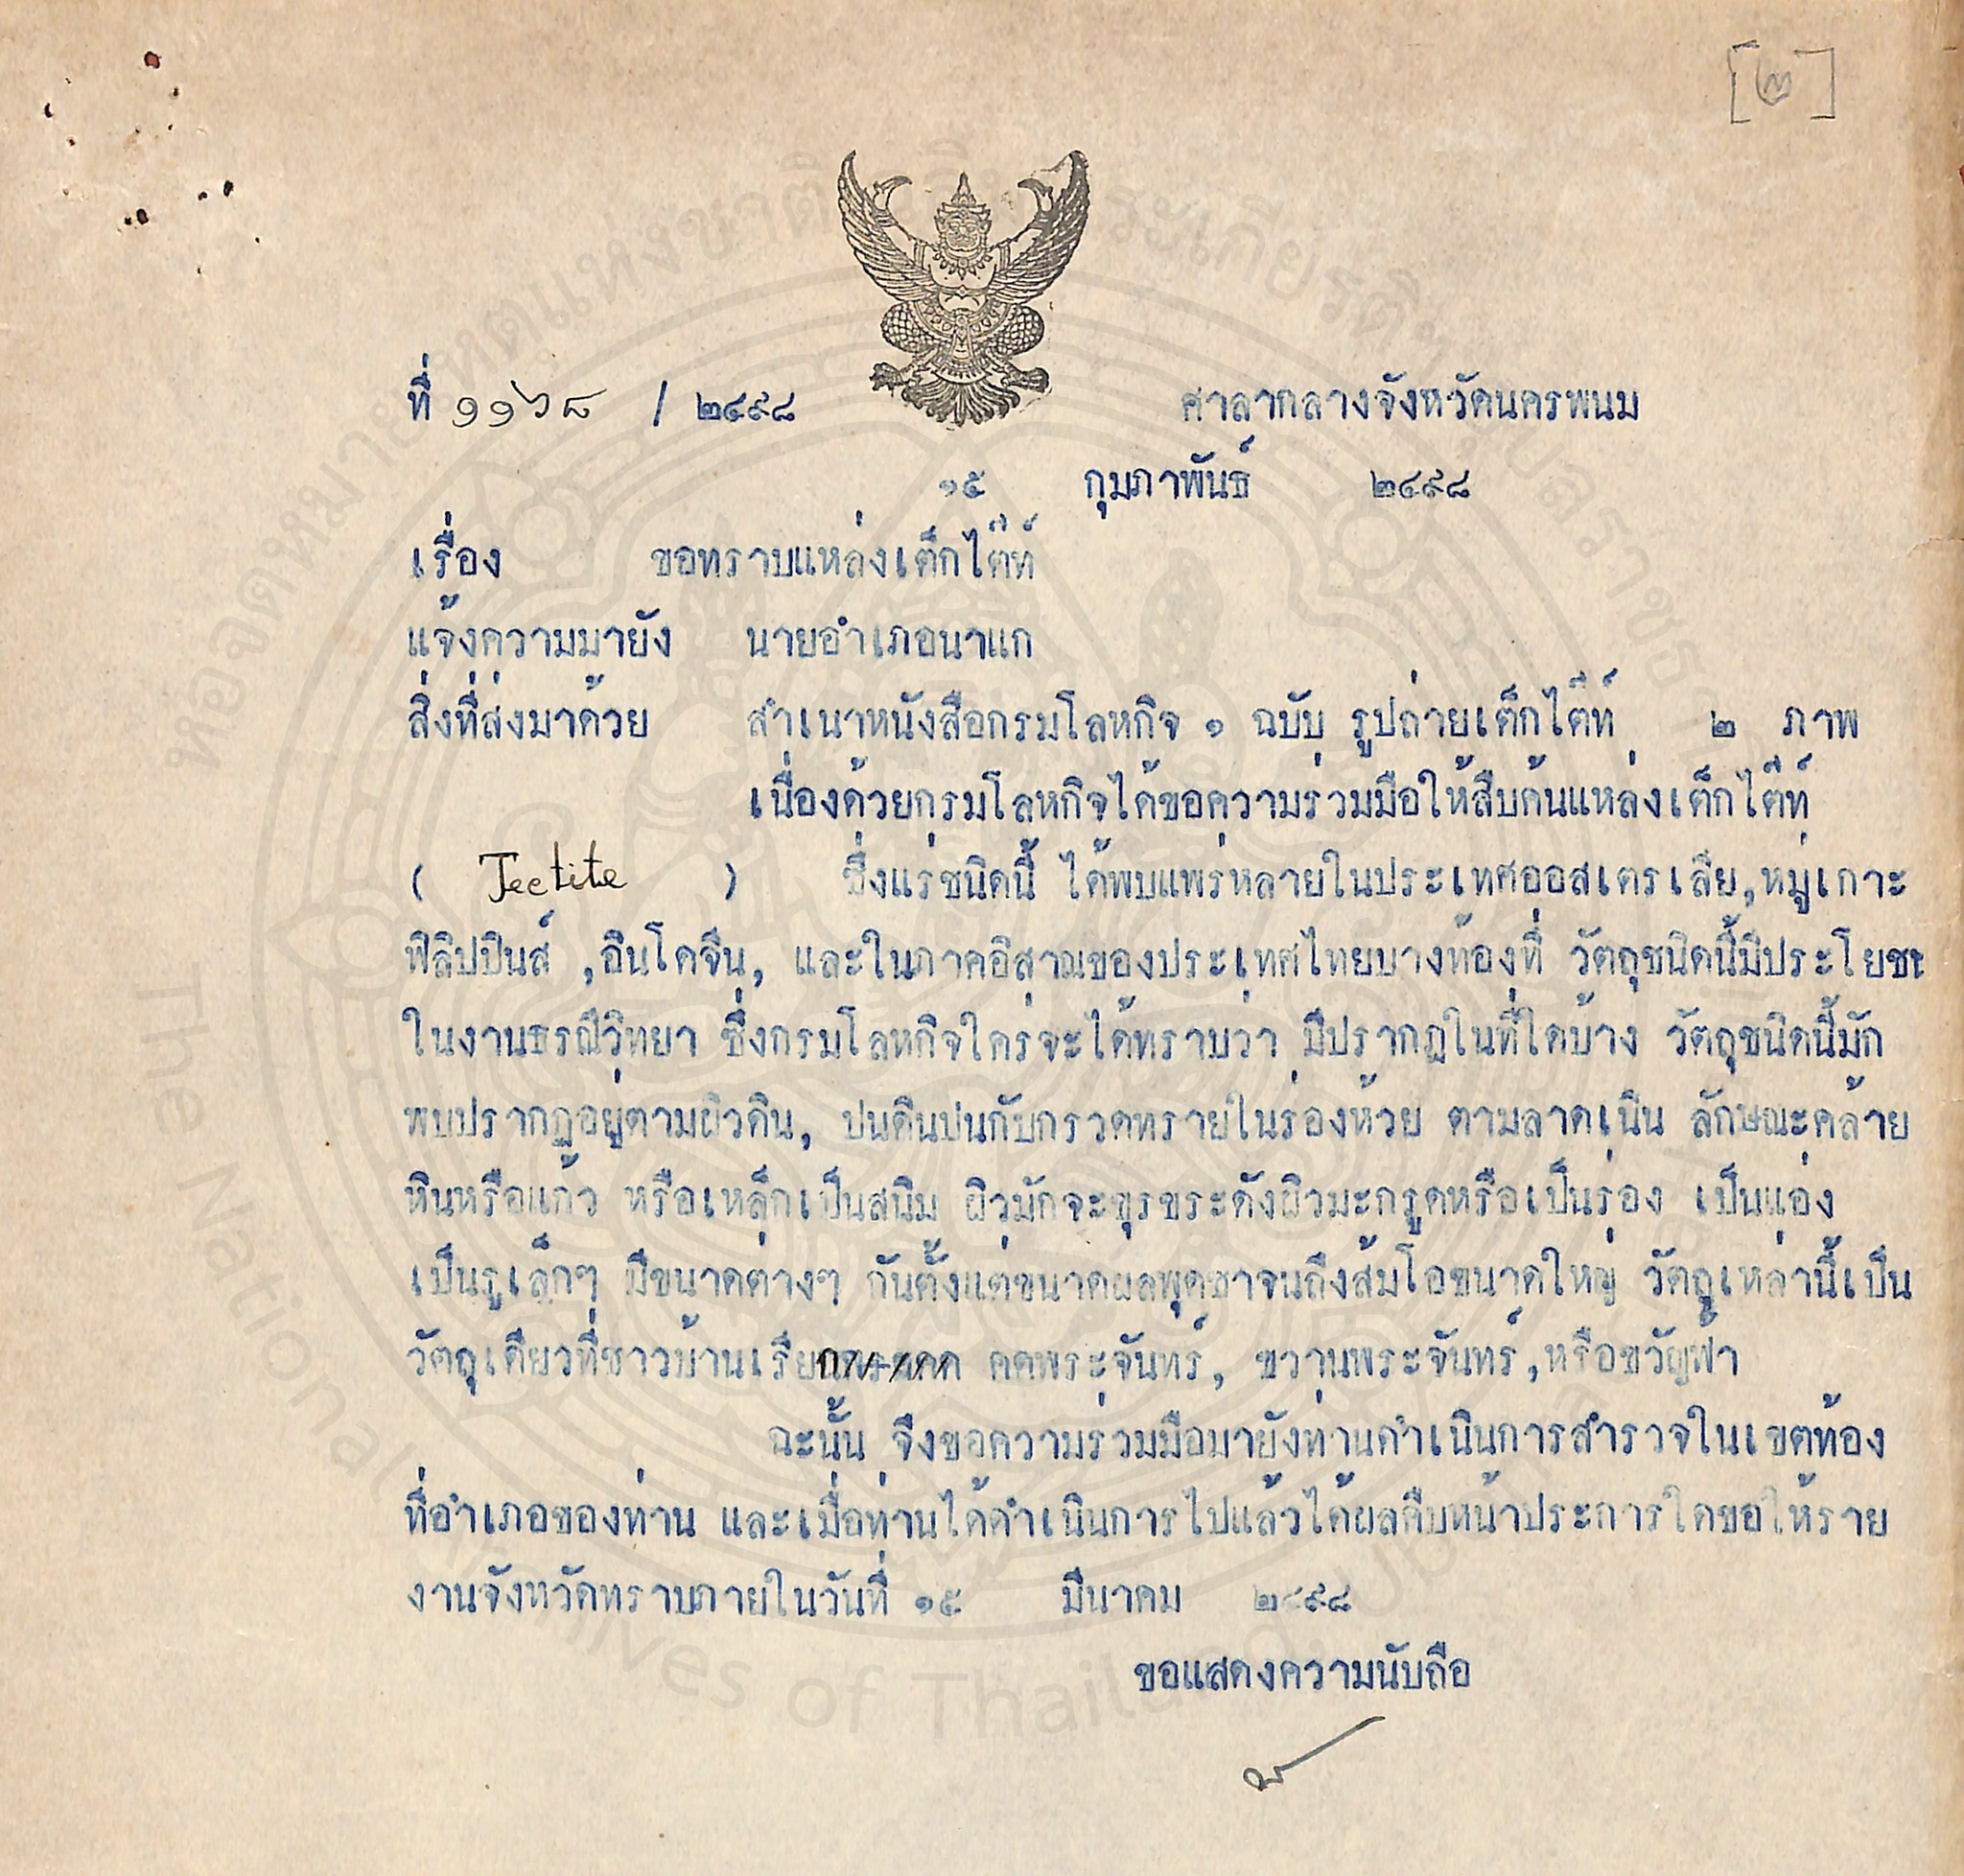 [๒]
ที่ ๑๑๖๘ / ๒๔๙๘ ศาลากลางจังหวัดนครพนม
๑๕ กุมภาพันธ์ ๒๔๙๘
เรื่อง ขอทราบแหล่งเต็กไต๊ท์
แจ้งความมายัง นายอำเภอนาแก
สิ่งที่ส่งมาด้วย สำเนาหนังสือกรมโลหกิจ ๑ ฉบับ รูปถ่ายเต็กไต๊ท์ ๒ ภาพ
เนื่องด้วยกรมโลหกิจได้ขอความร่วมมือให้สืบค้นแหล่งเต็กไต๊ท์
( Tectite ) ซึ่งแร่ชนิดนี้ ได้พบแพร่หลายในประเทศออสเตรเลีย,หมู่เกาะ
ฟิลิปปินส์ ,อินโดจีน, และในภาคอิสาณของประเทศไทยบางท้องที่ วัตถุชนิดนี้มีประโยชน
ในงานธรณีวิทยา ซึ่งกรมโลหกิจใคร่จะได้ทราบว่า มีปรากฏในที่ใดบ้าง วัตถุชนิดนี้มัก
พบปรากฏอยู่ตามผิวดิน, ปนดินปนกับกรวดทรายในร่องห้วย ตามลาดเนิน ลักษณะคล้าย
หินหรือแก้ว หรือเหล็กเป็นสนิม ผิวมักจะขุรขระดังผิวมะกรูดหรือเป็นร่อง เป็นแอ่ง
เป็นรูเล็กๆ มีขนาดต่างๆ กันตั้งแต่ขนาดผลพุดซาจนถึงส้มโอขนาดใหญ่ วัตถุเหล่านี้เป็น
วัตถุเดียวที่ชาวบ้านเรียก คดพระจันทร์, ขวานพระจันทร์,หรือขวัญฟ้า
ฉะนั้น จึงขอความร่วมมือมายังท่านดำเนินการสำรวจในเขตท้อง
ที่อำเภอของท่าน และเมื่อท่านได้ดำเนินการไปแล้วได้ผลคืบหน้าประการใดขอให้ราย
งานจังหวัดทราบภายในวันที่ ๑๕ มีนาคม ๒๔๙๘
ขอแสดงความนับถือ
หอจดหมายเหตุแห่งชาติ
The National Archives of Thailand